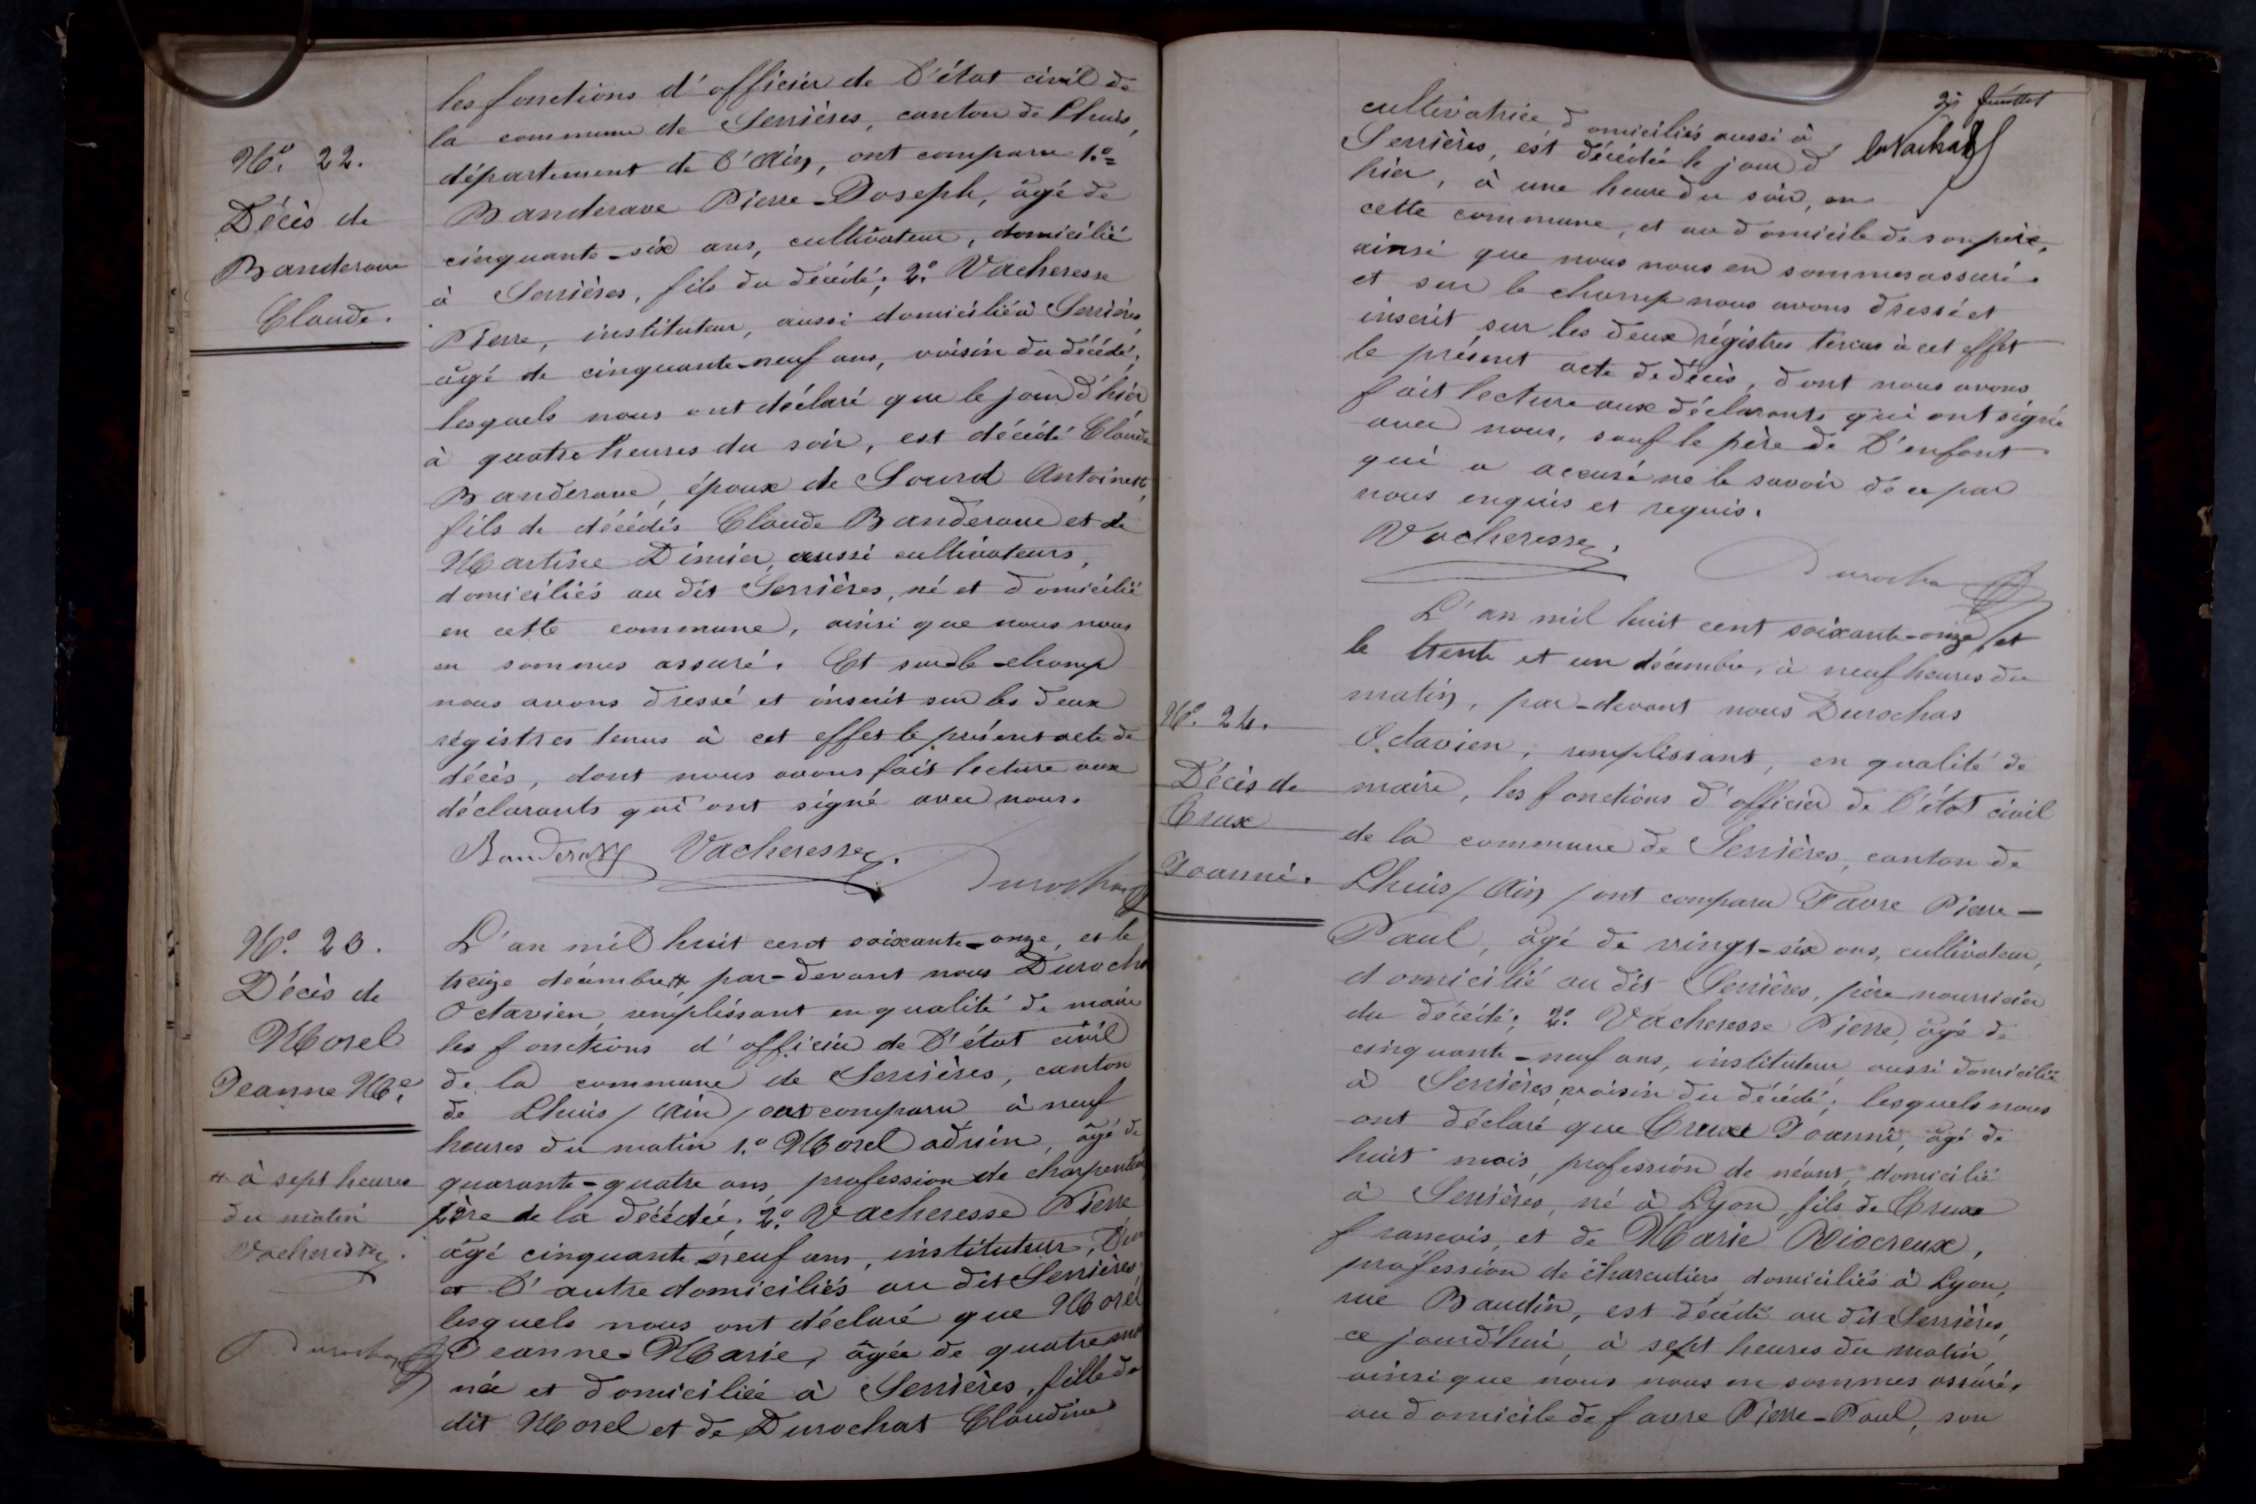 les fonctions d'officier de l'état civil de
la commune de Serrières, canton de Lhuis,
département de l'Ain, ont comparu 1.°
Banderave Pierre-Joseph, âgé de
cinquante-six ans, cultivateur, domicilié
à Serrières, fils du décédé; 2.° Vacheresse
Pierre, instituteur, aussi domicilié à Serrières,
âgé de cinquante-neuf ans, voisin du décédé;
lesquels nous ont déclaré que le jour d'hier
à quatre heures du soir, est décédé Claude
Banderave, époux de Sourd Antoinette,
fils de décédés Claude Banderave et de
Martine Dimier, aussi cultivateurs,
domiciliés au dit Serrières, né et domicilié
en cette commune, ainsi que nous nous
en sommes assuré. Et sur le champ
nous avons dressé et inscrit sur les deux
régistres tenus à cet effet le présent acte de
décès, dont nous avons fait lecture aux
déclarants qui ont signé avec nous.
Banderave Vacheresse
Durochat
N.° 22.
Décès de
Banderave
Claude.
N.° 23.
Décès de
Morel
Jeanne M.e
L'an mil huit cent soixante-onze, et le
treize décembre # par-devant nous Durochat
Octavien remplissant en qualité de maire
les fonctions d'officier de l'état civil
de la commune de Serrières, canton
de Lhuis / Ain / ont comparu à neuf
heures du matin 1.° Morel adrien, âgé de
quarante-quatre ans profession de charpentier
père de la décédée; 2.° Vacheresse Pierre
âgé cinquante neuf ans, instituteur, l'un
et l'autre domiciliés au dit Serrières
lesquels nous ont déclaré que Morel
Jeanne Marie, âgée de quatre ans
née et domiciliée à Serrières, fille du
dit Morel et de Durochat Claudine
# à sept heures
du matin
Vacheresse.
Durochat
cultivatrice, domiciliés aussi à
Serrières, est décédée le jour d
hier, à une heure du soir, en
cette commune, et au domicile de son père,
ainsi que nous nous en sommes assuré.
et sur le champ nous avons dressé et
inscrit sur les deux régistres tenus à cet effet
le présent acte de décès, dont nous avons
fait lecture aux déclarants qui ont signé
avec nous, sauf le père de l'enfant
qui a accusé ne le savoir de ce par
nous enquis et requis.
Vacheresse.
Durochat
N.° 24.
Décès de
Creux
Joanni.
L'an mil huit cent soixante-onze, et
le trente et un décembre, à neuf heures du
matin, par-devant nous Durochas
Octavien, remplissant, en qualité de
maire, les fonctions d'officier de l'état civil
de la commune de Serrières, canton de
Lhuis / Ain / ont comparu Favre Pierre-
Paul, âgé de vingt-six ans, cultivateur,
domicilié au dit Serrières, père nourricier
du décédé; 2.° Vacheresse Pierre, âgé de
cinquante-neuf ans, instituteur aussi domicilié
à Serrières, voisin du décédé; lesquels nous
ont déclaré que Creux Joanni, âgé de
huit mois, profession de néant, domicilié
à Serrières, né à Lyon, fils de Creux
francois, et de Marie Biocreux,
profession de charcutiers domiciliés à Lyon,
rue Baudin, est décédé au dit Serrières,
ce jourd'hui, à sept heures du matin,
ainsi que nous nous en sommes assuré,
au domicile de favre Pierre-Paul, son